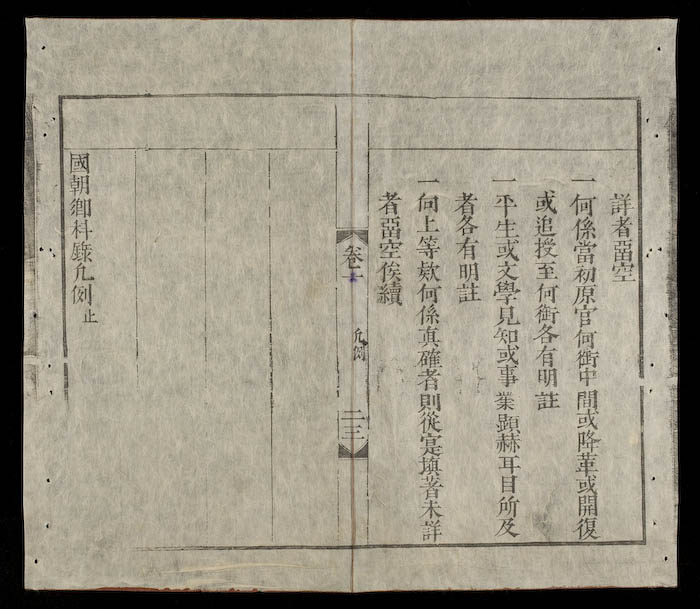 詳者畱空
一何係當初原官何銜中間或降革或開復
或追授至何銜各有明註
一平生或文學見知或事業顯赫耳目所及
者各有明註
一向上等欵何係真確者則從寔填著未詳
者畱空俟續
卷一
凡例
二三
國朝鄉科錄凡例止